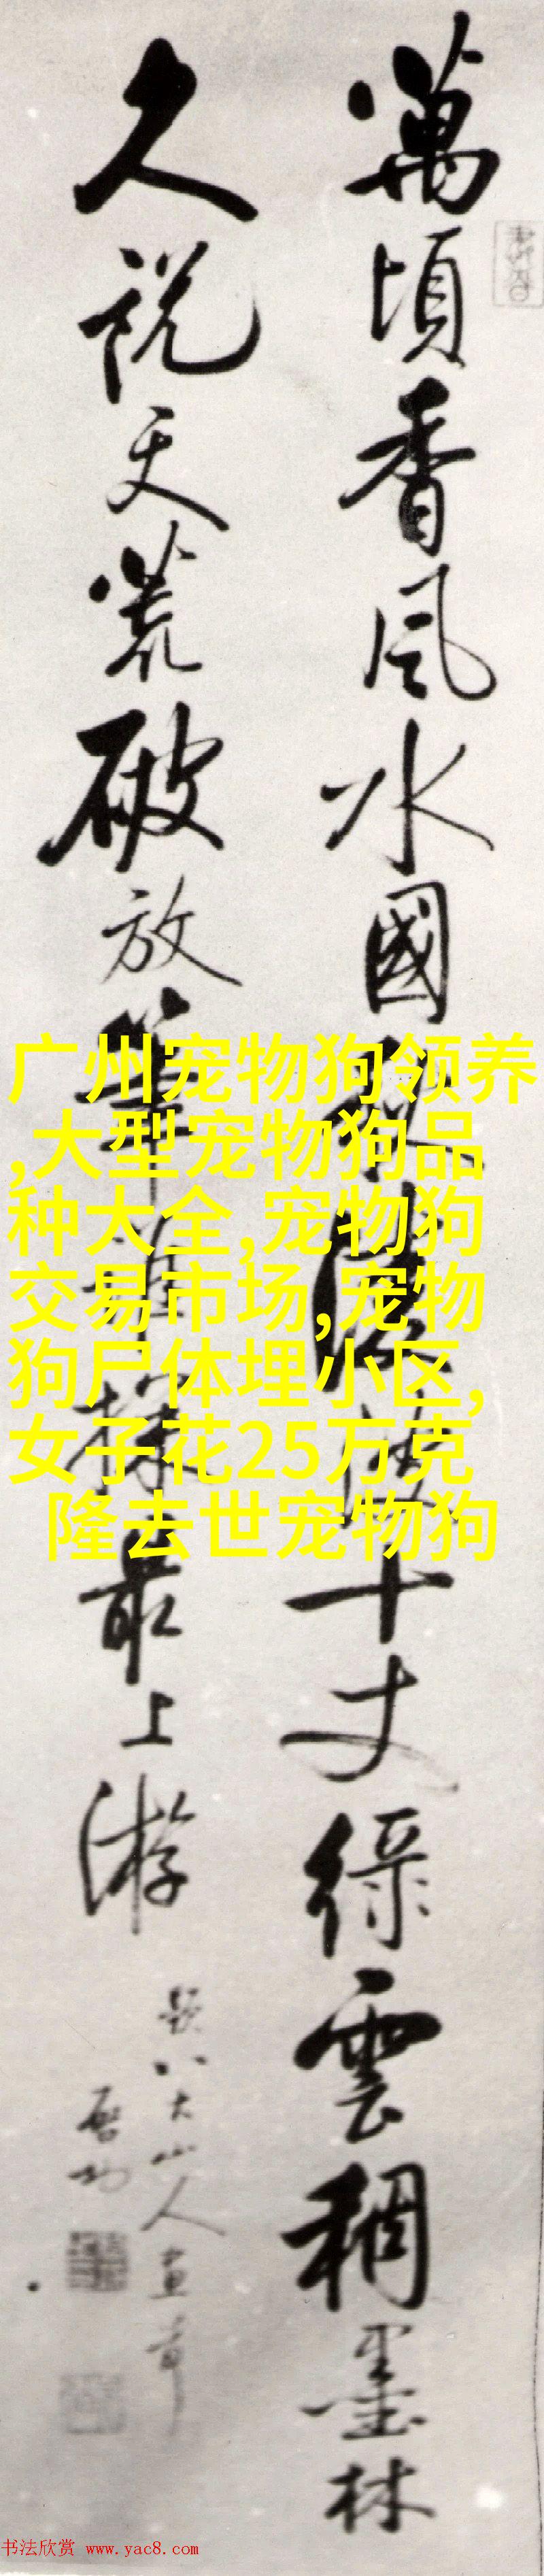 萬頃香風水國秋凌波十丈綠雲稠墨林
久說天荒破放筆誰操最上游
題八大山人畫
啟功
广州宠物狗领养
,大型宠物狗品
种大全,宠物狗
交易市场,宠物
狗尸体埋小区,
女子花25万克
隆去世宠物狗
书法欣赏 www.yac8.com